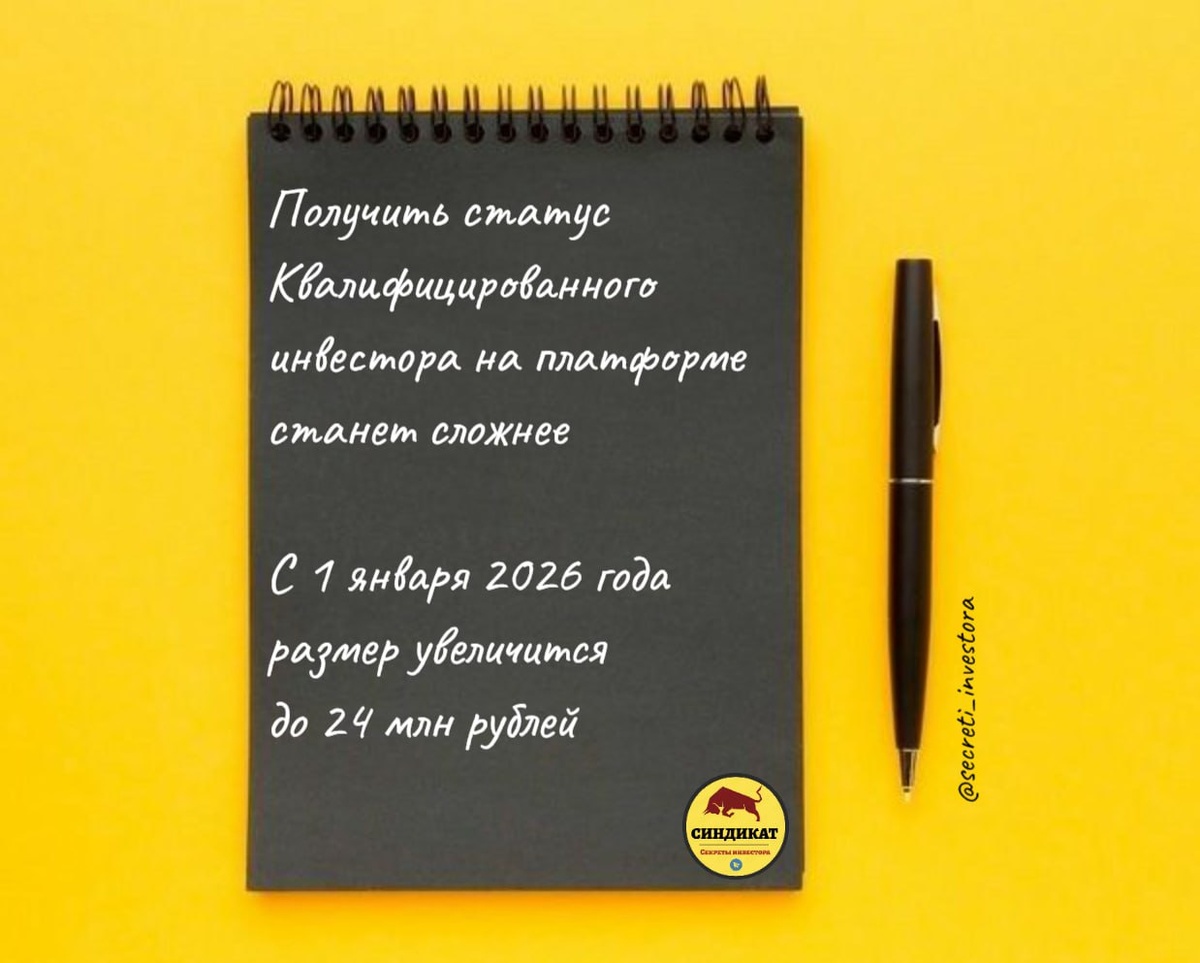 Получить статус
Квалифицированного
инвестора на платформе
станет сложнее
С 1 января 2026 года
размер увеличится
до 24 млн рублей
@secreti_investora
СИНДИКАТ
Секреты инвестора